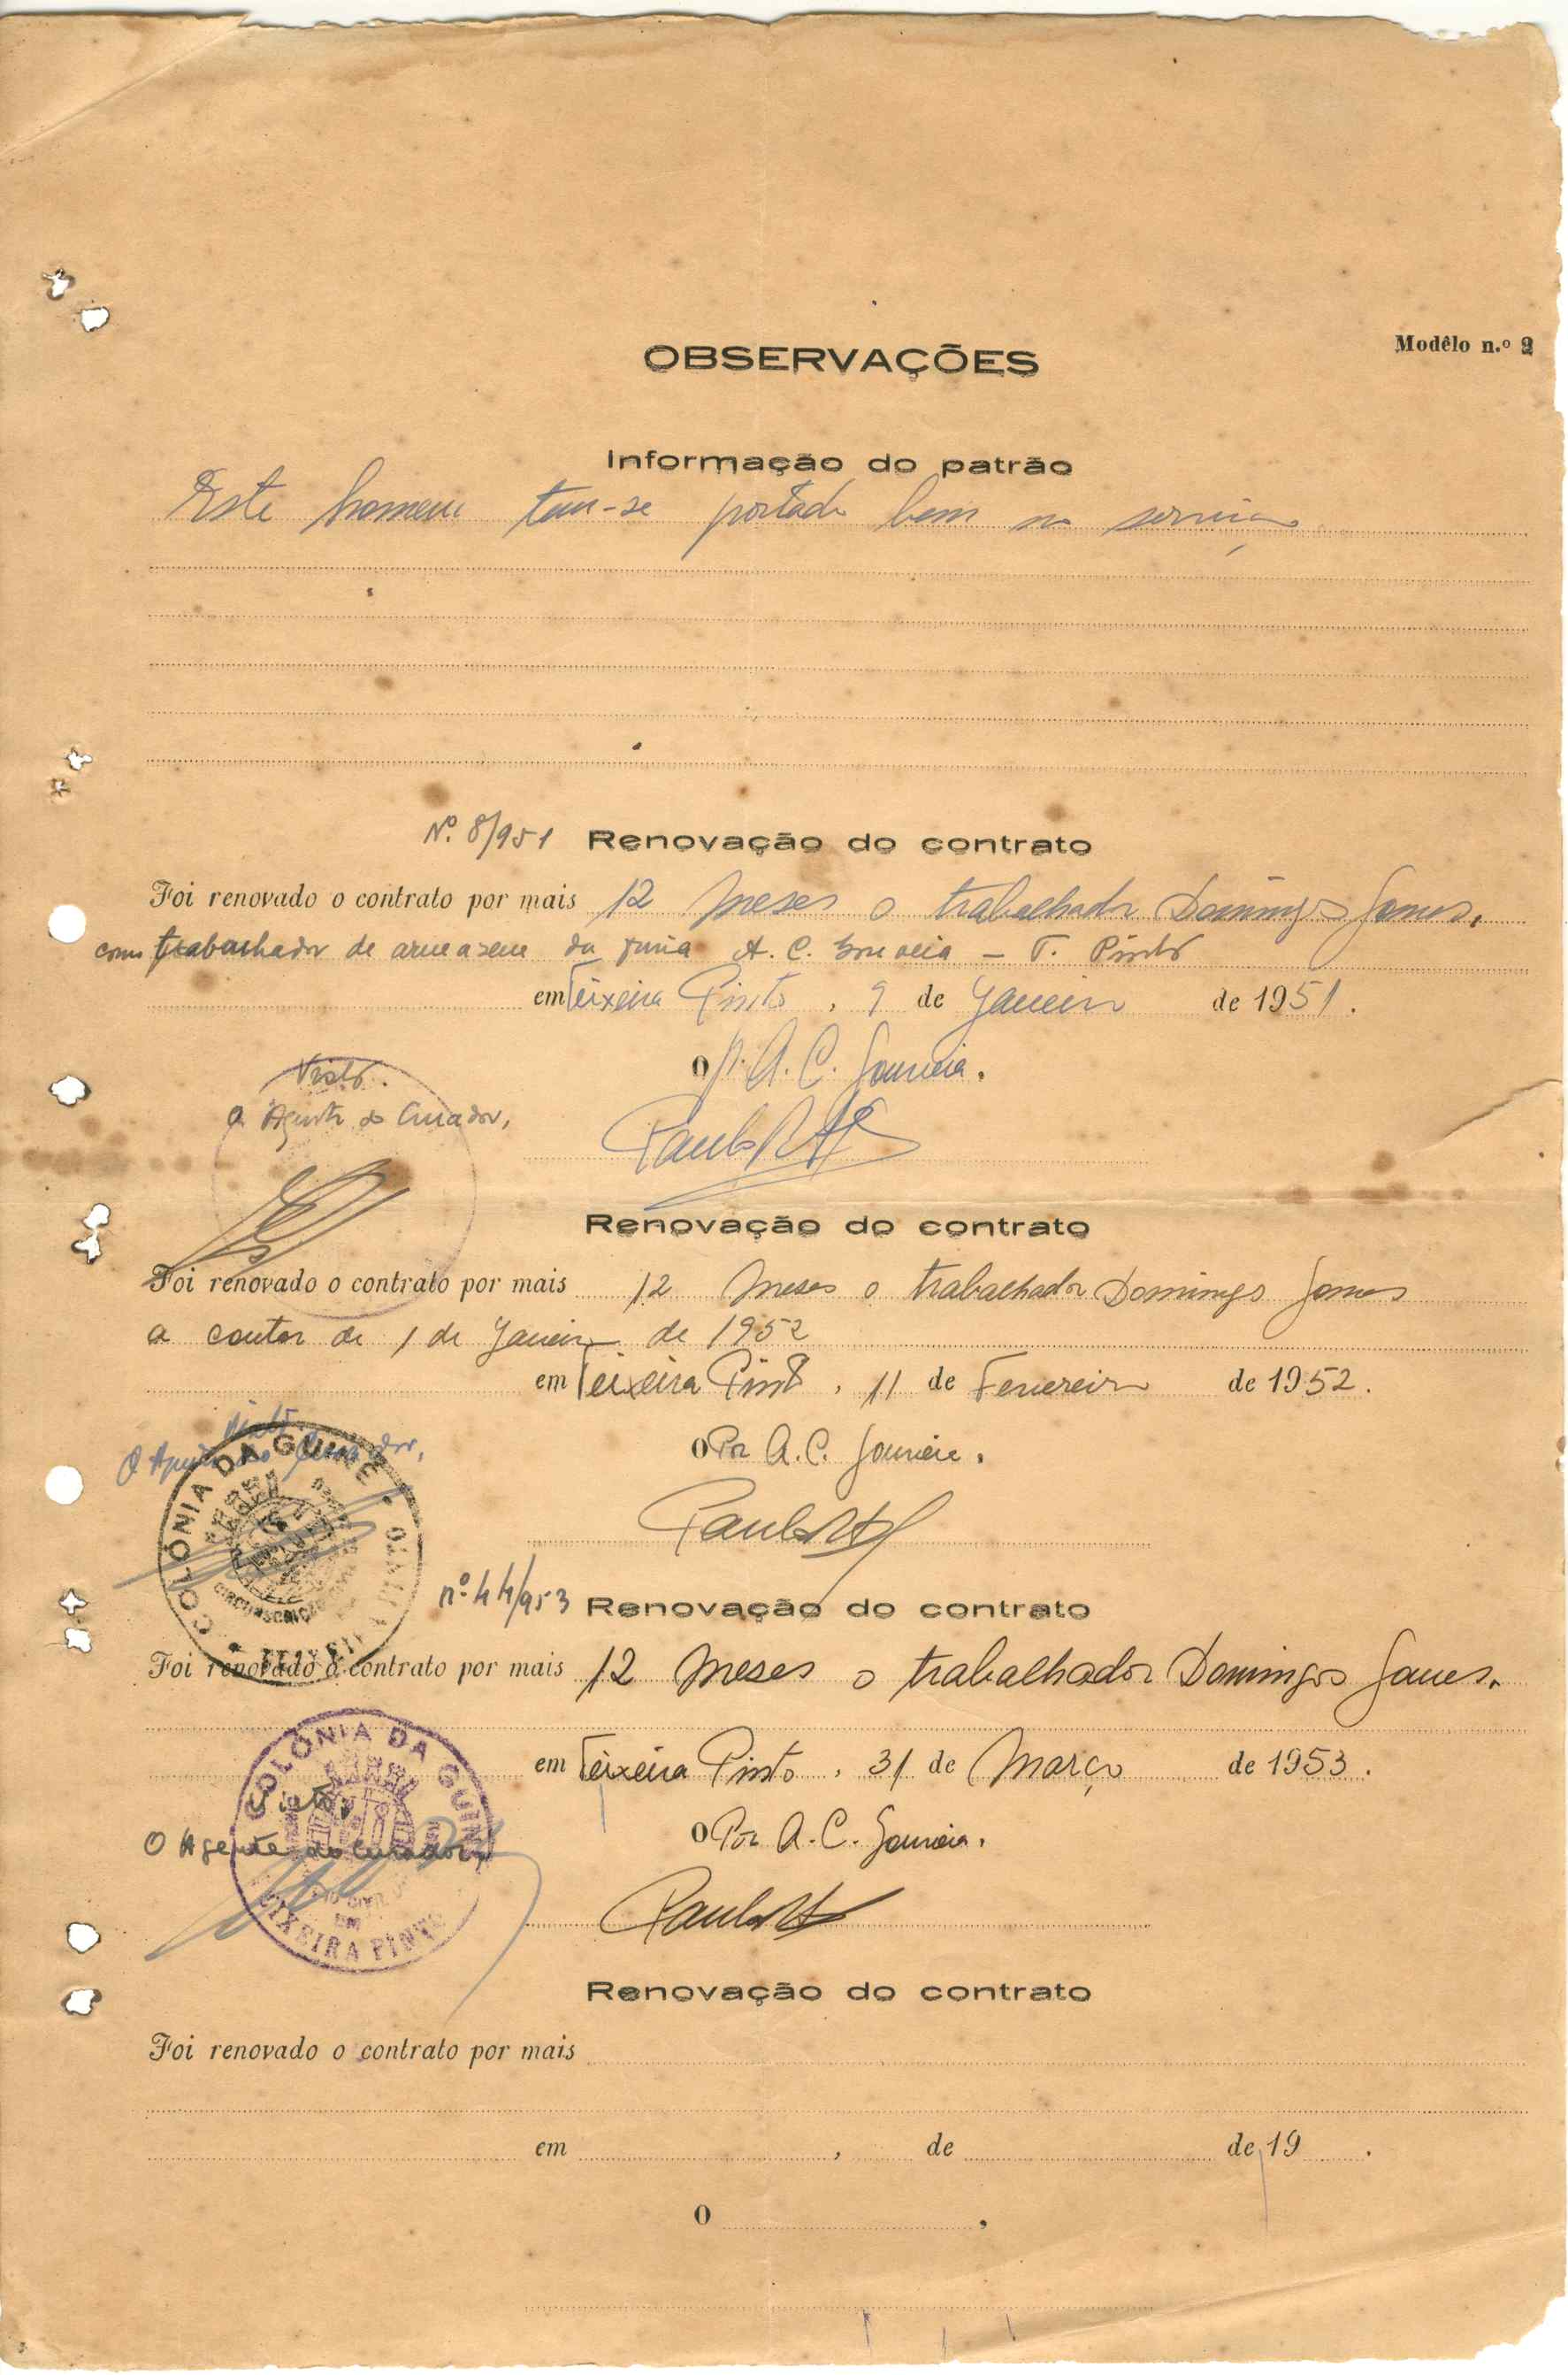 Modêlo n.º 2
OBSERVAÇÕES
Informação do patrão
Este homem tem-se portado bem no serviço
N.º 8/951 Renovação do contrato
Foi renovado o contrato por mais 12 meses o trabalhador Domingos Gomes,
como trabalhador de armazem da firma A. C. Gouveia – T. Pinto
em Teixeira Pinto, 9 de Janeiro de 1951.
O p. A. C. Gouveia.
Visto.
O Agente do Curador,
Paulo
Renovação do contrato
Foi renovado o contrato por mais 12 meses o trabalhador Domingos Gomes
a contar de 1 de Janeiro de 1952
em Teixeira Pinto, 11 de Fevereiro de 1952.
Visto
O Agente do Curador,
O Por A. C. Gouveia.
COLÓNIA DA GUINÉ
CIRCUNSCRIÇÃO
Paulo
n.º 44/953 Renovação do contrato
Foi renovado o contrato por mais 12 meses o trabalhador Domingos Gomes.
em Teixeira Pinto, 31 de Março de 1953.
COLÓNIA DA GUINÉ
TEIXEIRA PINTO
Visto,
O Agente do Curador
O Por A. C. Gouveia.
Paulo
Renovação do contrato
Foi renovado o contrato por mais
em , de de 19 .
O ,